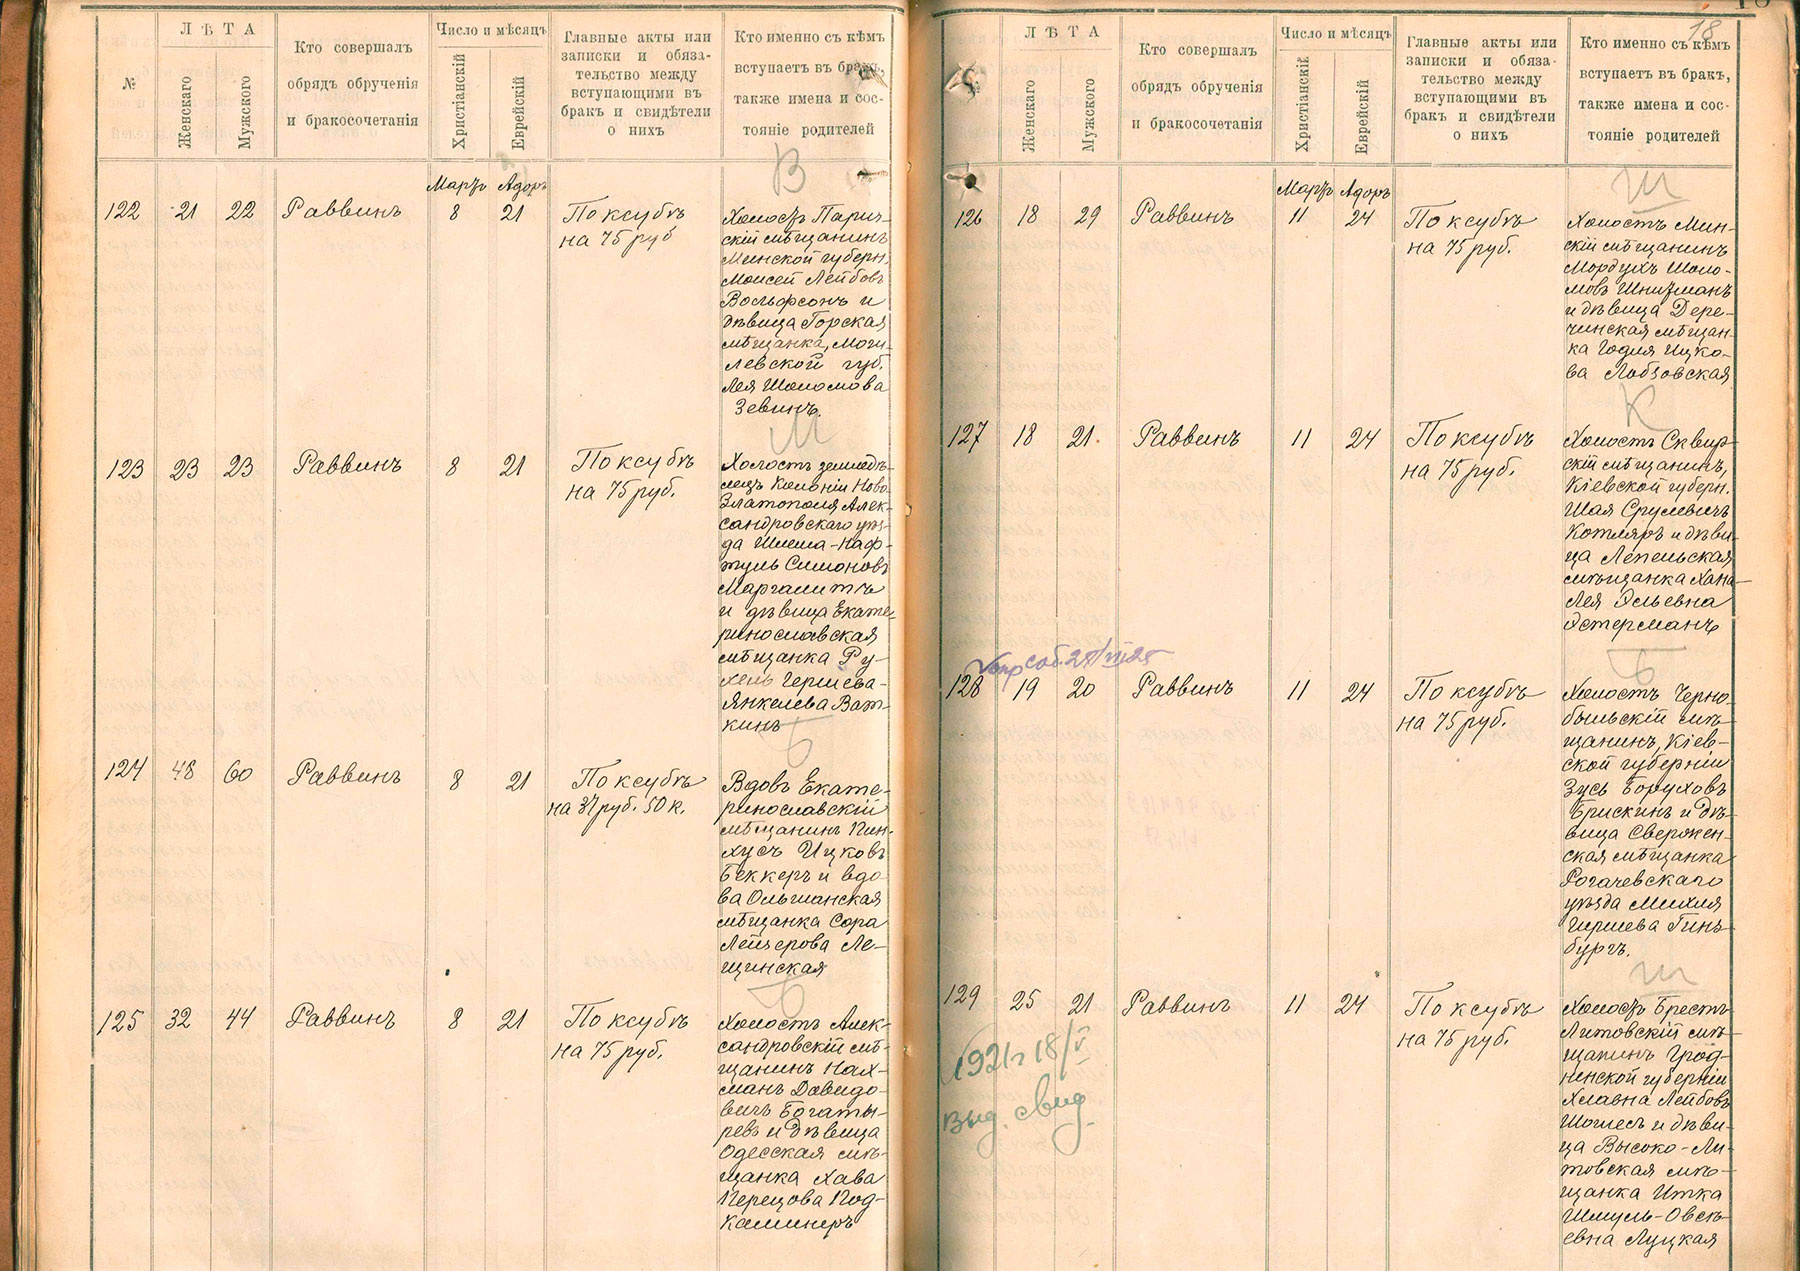 №
ЛѢТА
Женскаго
Мужского
Кто совершалъ
обрядъ обрученія
и бракосочетанія
Число и мѣсяцъ
Христіанскій
Еврейскій
Главные акты или
записки и обяза-
тельство между
вступающими въ
бракъ и свидѣтели
о нихъ
Кто именно съ кѣмъ
вступаетъ въ бракъ,
также имена и сос-
тояніе родителей
В
Мартъ Адоръ
122 21 22 Раввинъ 8 21
По ксубѣ
на 75 руб
Холостъ Парич-
скій мѣщанинъ
Минской губерн.
Моисей Лейбовъ
Вольфсонъ и
дѣвица Горская
мѣщанка, Моги-
левской губ.
Лея Шоломова
Зевинъ.
М
123 23 23 Раввинъ 8 21
По ксубѣ
на 75 руб.
Холостъ земледѣ-
лецъ Колоніи Ново-
Златополя Алек-
сандровскаго уѣз-
да Шлема-Наф-
туль Симоновъ
Маргалитъ
и дѣвица Екате-
ринославская
мѣщанка Ру-
хель Гершева-
Янкелева Ват-
кинъ
Б
124 48 60 Раввинъ 8 21
По ксубѣ
на 37 руб. 50 к.
Вдовъ Екате-
ринославскій
мѣщанинъ Пин-
хусъ Ицковъ
Беккеръ и вдо-
ва Ольшанская
мѣщанка Сора
Лейзерова Ле-
щинская
Б
125 32 44 Раввинъ 8 21
По ксубѣ
на 75 руб.
Холостъ Алек-
сандровскій мѣ-
щанинъ Нах-
манъ Давидо-
вичъ Богаты-
ревъ и дѣвица
Одесская мѣ-
щанка Хава
Перецова Под-
каминеръ
18
ЛѢТА
Женскаго
Мужского
Кто совершалъ
обрядъ обрученія
и бракосочетанія
Число и мѣсяцъ
Христіанскій
Еврейскій
Главные акты или
записки и обяза-
тельство между
вступающими въ
бракъ и свидѣтели
о нихъ
Кто именно съ кѣмъ
вступаетъ въ бракъ,
также имена и сос-
тояніе родителей
Ш
Мартъ Адоръ
126 18 29 Раввинъ 11 24
По ксубѣ
на 75 руб.
Холостъ Мин-
скій мѣщанинъ
Мордухъ Шоло-
мовъ Шнизманъ
и дѣвица Дере-
чинская мѣщан-
ка Годля Ицко-
ва Лобзовская
К
127 18 21. Раввинъ 11 24
По ксубѣ
на 75 руб.
Холостъ Сквир-
скій мѣщанинъ,
Кіевской губерн.
Шая Срулевичъ
Котляръ и дѣви-
ца Лепельская
мѣщанка Хана-
Лея Эльевна
Эстерманъ
Б
128 19 20 Раввинъ 11 24
По ксубѣ
на 75 руб.
Холостъ Черно-
быльскій мѣ-
щанинъ, Кіев-
ской губерніи
Зусь Боруховъ
Брискинъ и дѣ-
вица Свержен-
ская мѣщанка
Рогачевскаго
уѣзда Михля
Гиршева Гинз-
бургъ.
Ш
129 25 21 Раввинъ 11 24
По ксубѣ
на 75 руб.
Холостъ Брестъ-
Литовскій мѣ-
щанинъ Грод-
ненской губерніи
Хлавна Лейбовъ
Шомесъ и дѣви-
ца Высоко-Ли-
товская мѣ-
щанка Итка
Шмуль-Овсѣ-
евна Луцкая
1921 г 18/V
Выд. свид.